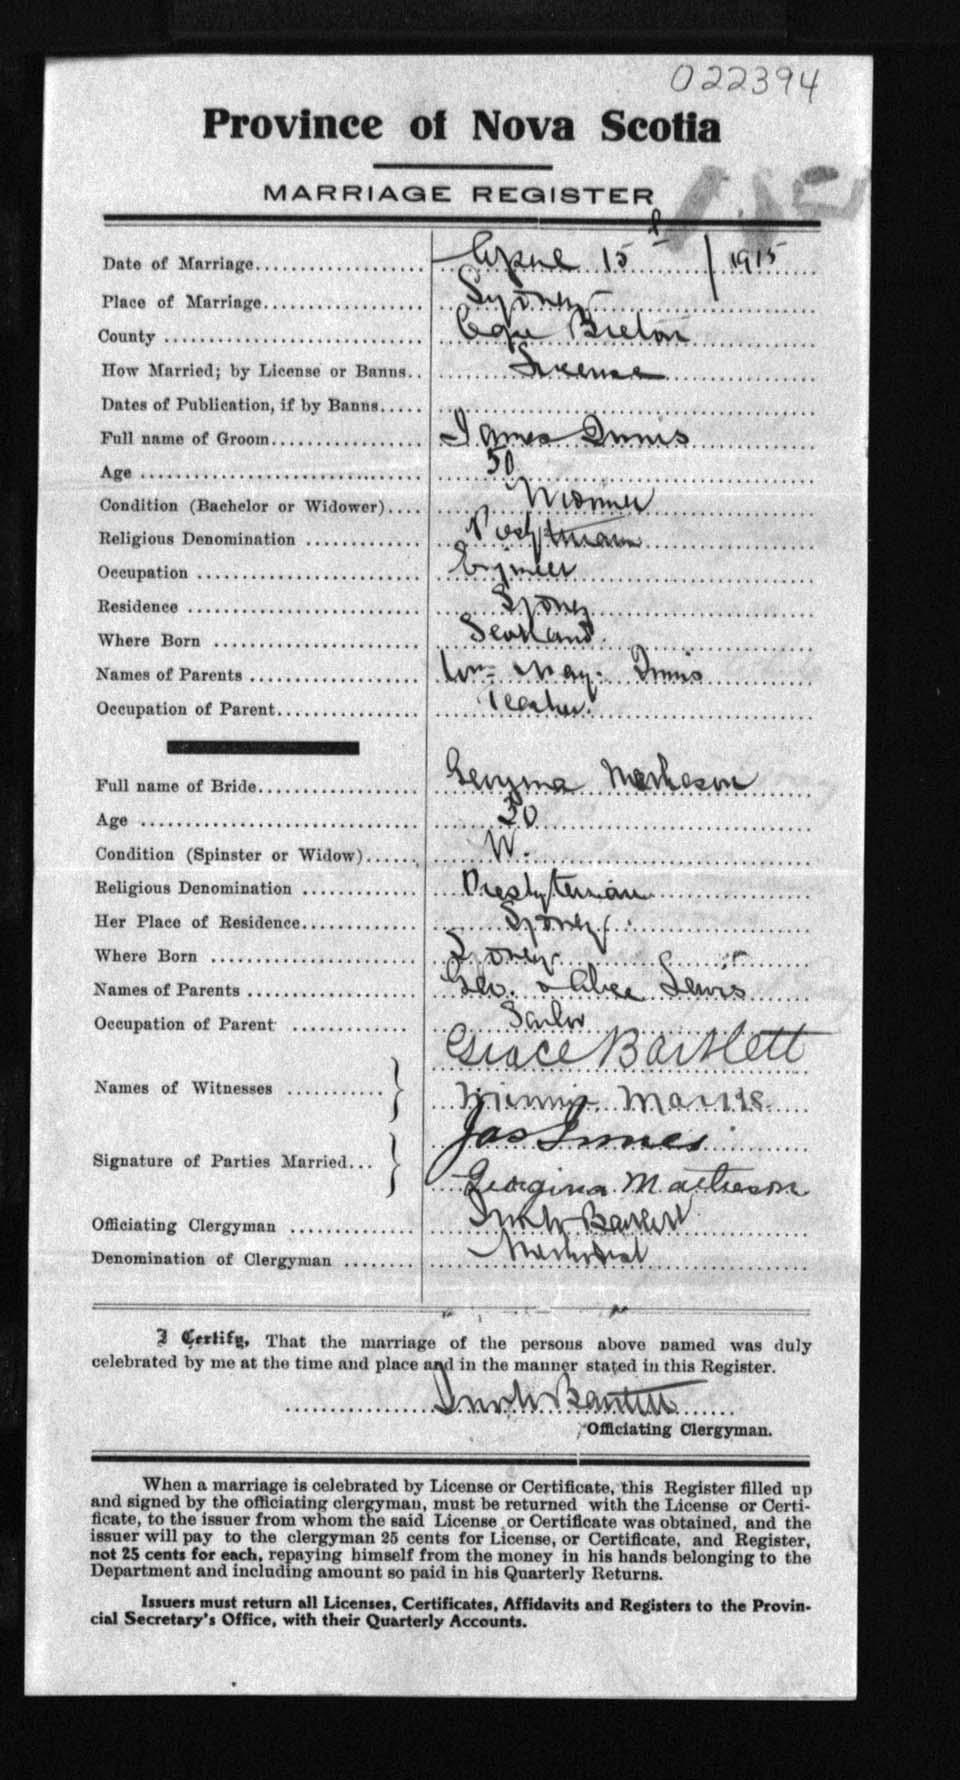 022394
Province of Nova Scotia
MARRIAGE REGISTER
Date of Marriage.................... April 15 / 1915
Place of Marriage.................... Sydney
County .................... Cape Breton
How Married; by License or Banns.. License
Dates of Publication, if by Banns.....
Full name of Groom.................... James Innis
Age .................... 50
Condition (Bachelor or Widower).... Widower
Religious Denomination ............. Presbyterian
Occupation .................... Engineer
Residence .................... Sydney
Where Born .................... Scotland
Names of Parents .................... Wm May. Innis
Occupation of Parent.................... Teacher.
Full name of Bride.................... Georgina Matheson
Age .................... 50
Condition (Spinster or Widow)...... W.
Religious Denomination ............. Presbyterian
Her Place of Residence.............. Sydney
Where Born .................... Sydney
Names of Parents .................... Geo. & Alice Lewis
Occupation of Parent ............. Sailor
Grace Bartlett
Names of Witnesses ............ }
Minnie
Jas Innes
Signature of Parties Married... }
Georgina Matheson
Officiating Clergyman ............. Bartlett
Denomination of Clergyman ........ Methodist
I Certify, That the marriage of the persons above named was duly
celebrated by me at the time and place and in the manner stated in this Register.
Bartlett
Officiating Clergyman.
When a marriage is celebrated by License or Certificate, this Register filled up
and signed by the officiating clergyman, must be returned with the License or Certi-
ficate, to the issuer from whom the said License or Certificate was obtained, and the
issuer will pay to the clergyman 25 cents for License, or Certificate, and Register,
not 25 cents for each, repaying himself from the money in his hands belonging to the
Department and including amount so paid in his Quarterly Returns.
Issuers must return all Licenses, Certificates, Affidavits and Registers to the Provin-
cial Secretary's Office, with their Quarterly Accounts.